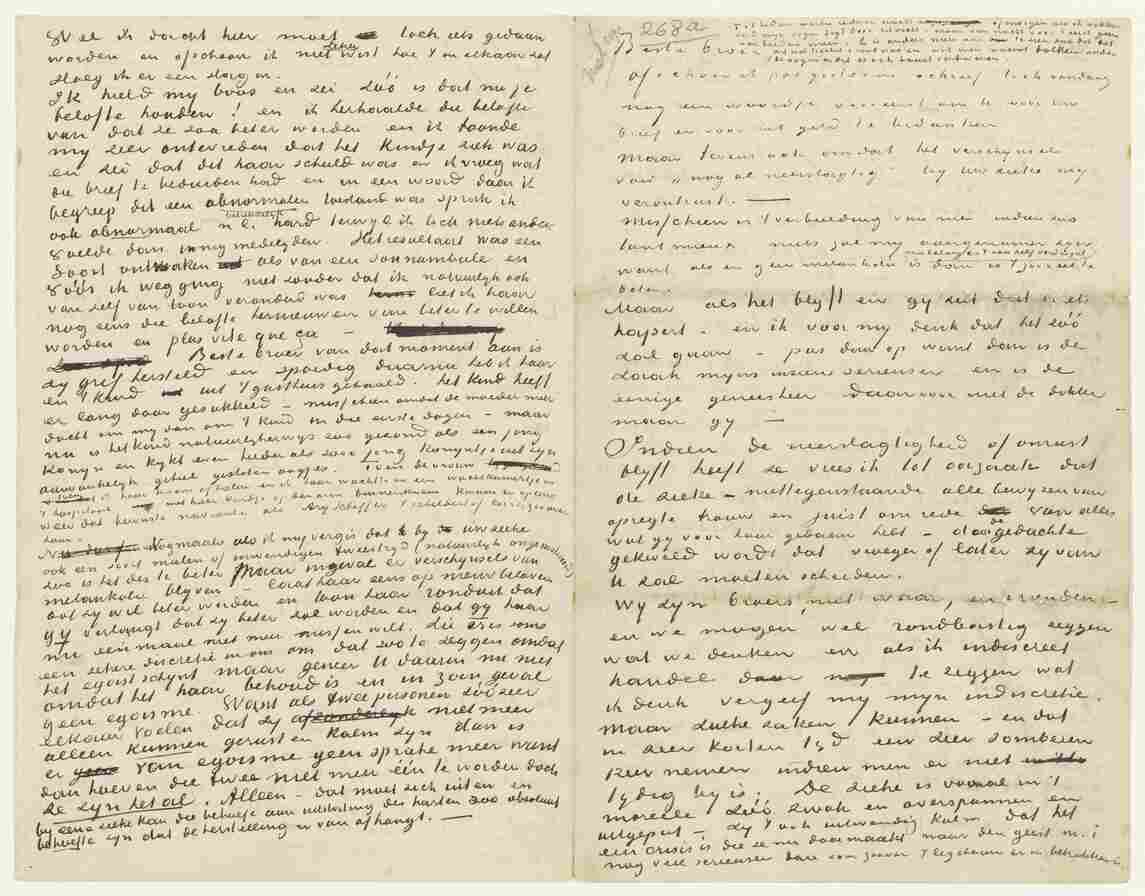 Wel ik dacht hier moet toch iets gedaan
worden en ofschoon ik niet zeker wist hoe 't on elkaar zat
sloeg ik er een slag in.
Ik hield my boos en zei zóó is dat nu je
belofte houden! en ik herhaalde die belofte
van dat ze zou beter worden en ik toonde
my zeer ontevreden dat het kindje ziek was
en zei dat dit haar schuld was en ik vroeg wat
die brief te beduiden had en in een woord daar ik
begreep dit een abnormalen toestand was sprak ik
ook abnormaal n.l. hard terwyl ik toch niets anders
voelde dan innig medelyden. Het resultaat was een
soort ontwaken als van een somnambule en
vóór ik wegging niet zonder dat ik natuurlyk ook
van zelf van toon veranderd was liet ik haar
nog eens die belofte hernieuwen van beter te willen
worden en plus vite que ça –
Beste broer van dat moment aan is
zy grif hersteld en spoedig daarna heb ik haar
en 't kind uit 't gasthuis gehaald. het kind heeft
er lang daar gesukkeld – misschien omdat de moeder meer
dacht om my dan om 't kind in die eerste dagen – maar
nu is het kind natuurlykerwys zoo gezond als een jong
konyn en kykt even helder als zoo'n jong konyntje uit zyn
aanvankelyk geheel gesloten oogjes. Toen de vrouw
Nogmaals als ik my vergis dat by uw zieke
ook een soort malen of inwendigen tweestryd (natuurlyk ongemotiveerd)
zoo is het des te beter. Maar ingeval er verschynsels van
melankolie blyven – laat haar eens op nieuw beloven
dat zy wil beter worden en toon haar ronduit dat
gy verlangt dat zy beter zal worden en dat gy haar
nu eenmaal niet meer missen wilt. Er is soms
een zekere discretie in ons om dat zoo te zeggen omdat
het egoist schynt maar geneer U daarin nu niet
omdat het haar behoud is en in zoo'n geval
geen egoisme. Want als twee personen zóó zeer
elkaar voelen dat zy niet meer
alleen kunnen gerust en kalm zyn dan is
er van egoisme geen sprake meer want
dan hoeven die twee niet meer één te worden doch
ze zyn het al. Alleen – dat moet zich uiten en
by een zieke kan die behoefte aan uitstorting des harten zoo absoluut
behoefte zyn dat de herstelling er van afhangt. —
268a
Beste broer
ofschoon ik pas gisteren schreef toch vandaag
nog een woordje vooreerst om U voor uw
brief en voor het geld te bedanken
Maar tevens ook omdat het verschynsel
van „nog al neerslagtig" by uw zieke my
verontrust. —
Misschien is 't verbeelding van my indien dus
tant mieux niets zal my aangenamer zyn
want als er geen melankolie is dan is 't zooveel te
beter.
Maar als het blyft en gy ziet dat er iets
hapert – en ik voor my denk dat het zóó
zal gaan – pas dan op want dan is de
zaak myns inziens serieuser en is de
eenige geneesheer daarvoor niet de dokter
maar gy —
Indien de neerslagtigheid of onrust
blyft heeft ze vrees ik tot oorzaak dat
die zieke – niettegenstaande alle bewyzen van
opregte trouw en juist om reden van alles
wat gy voor haar gedaan hebt – door de gedachte
gekweld wordt dat vroeger of later zy van
U zal moeten scheiden.
Wy zyn broers niet waar, en vrienden –
en we mogen wel rondborstig zeggen
wat we denken en als ik indiscreet
handel door te zeggen wat
ik denk vergeef my myn indiscretie.
Maar zulke zaken kunnen – en dat
in zeer korten tyd een zeer somberen
keer nemen indien men er niet
tydig by is. De zieke is vooral in 't
moreele zóó zwak en overspannen en
uitgeput – zy 't ook uitwendig kalm dat het
een crisis is die ze nu doormaakt naar den geest m.i.
nog veel serieuser dan van